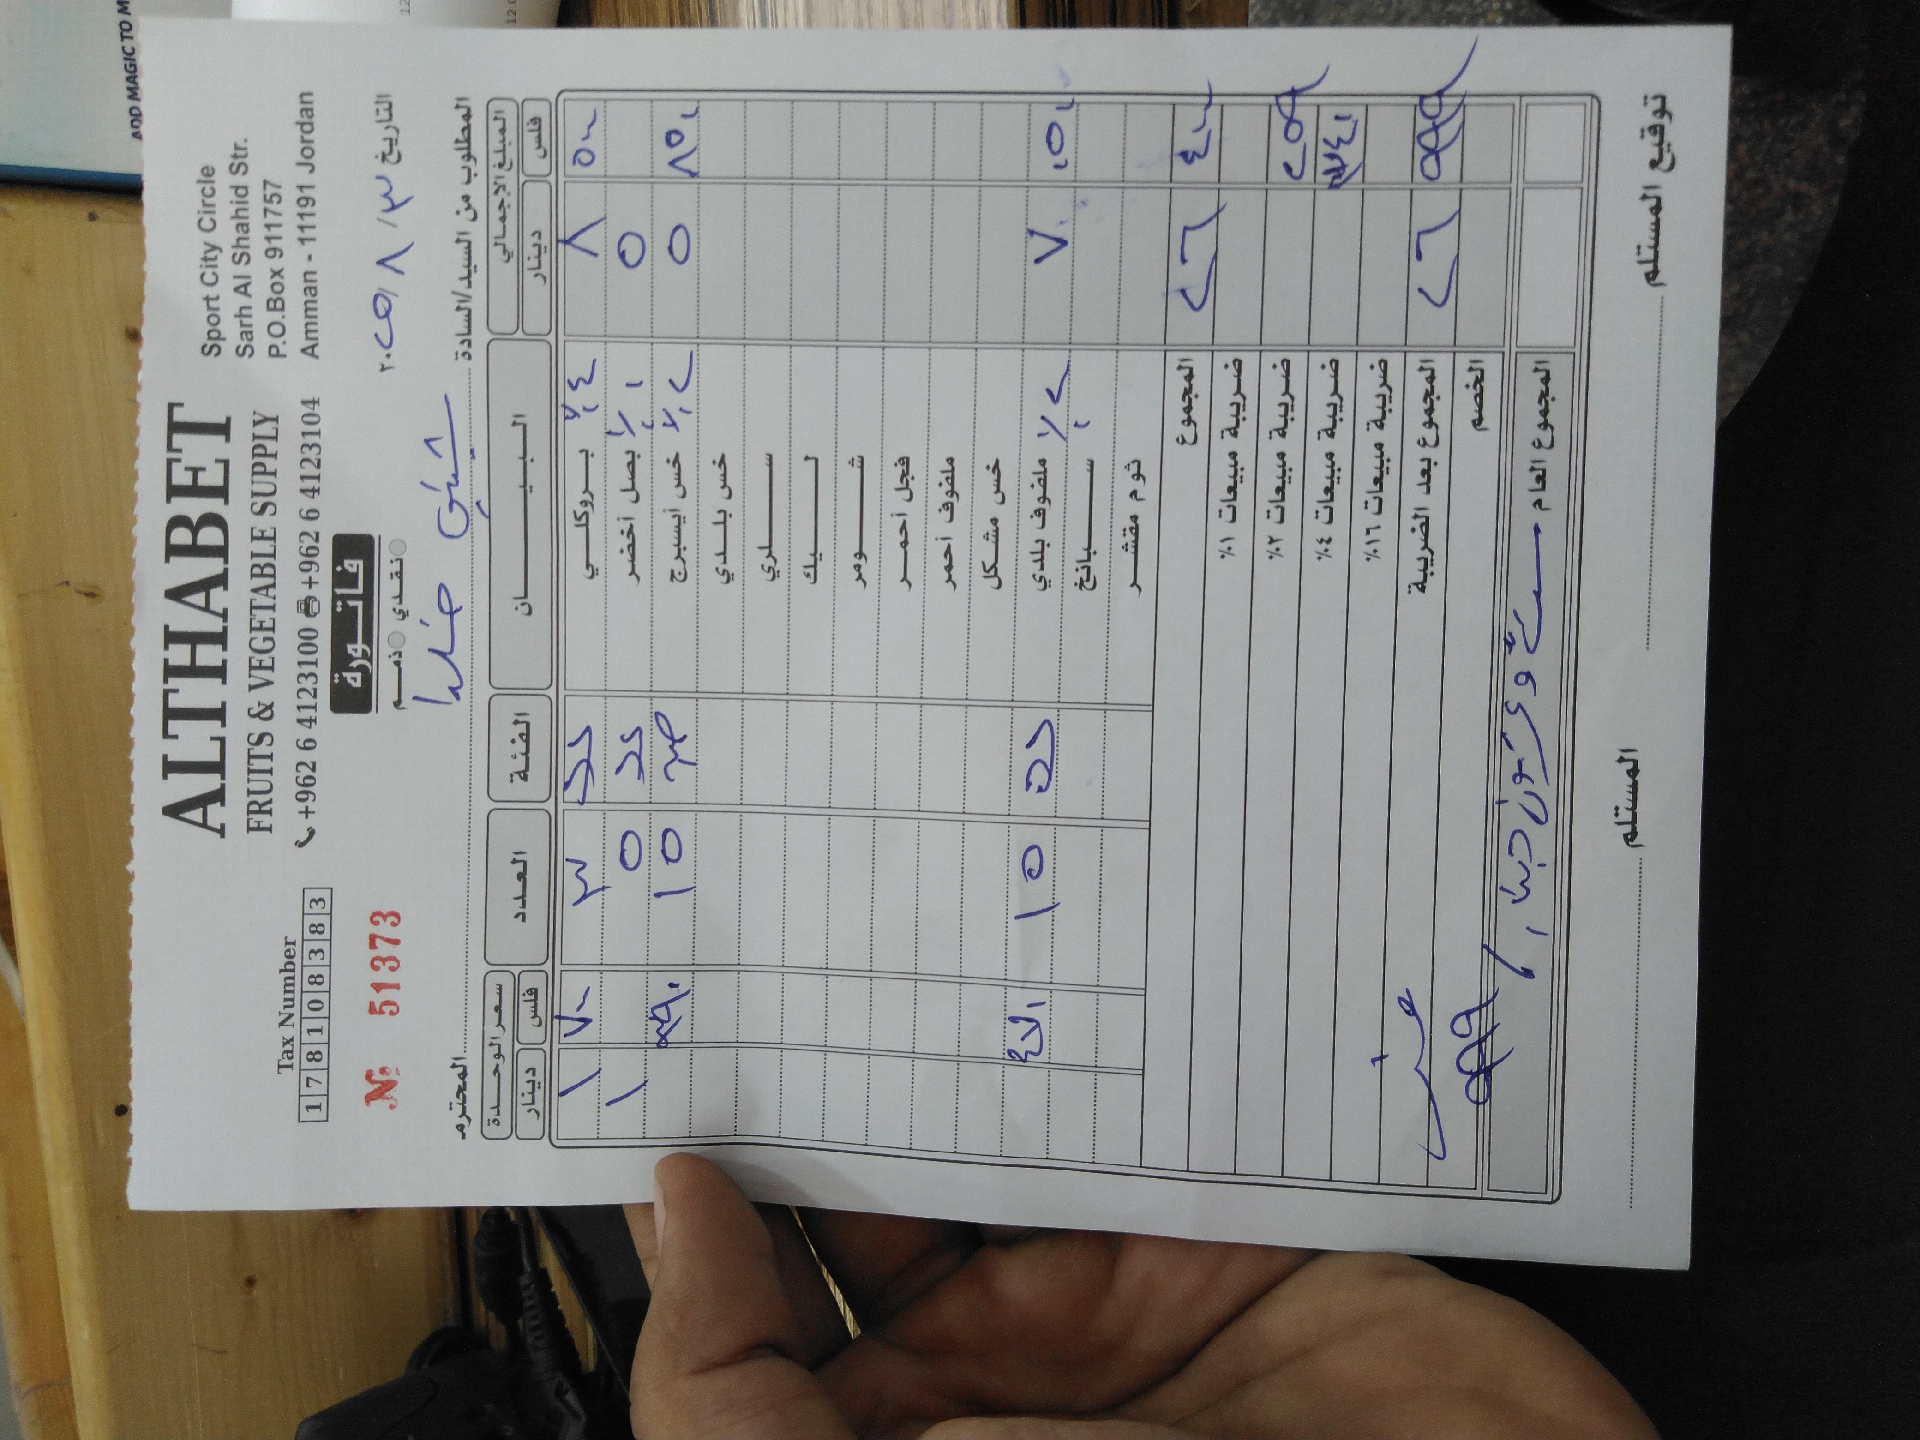 ADD MAGIC TO M
ALTHABET
FRUITS & VEGETABLE SUPPLY
+962 6 4123100 +962 6 4123104
Sport City Circle
Sarh Al Shahid Str.
P.O.Box 911757
Amman - 11191 Jordan
Tax Number
1 7 8 1 0 8 3 8 3
№ 51373
فاتورة
نقدي ذمم
التاريخ ٣ / ٨ / ٢٠٢٥
المطلوب من السيد/السادة المحترم
المبلغ الاجمالي البيان الفئة العدد سعر الوحدة
فلس دينار فلس دينار
٨ بروكلي ٤٪ ٣ ١
٥ بصل أخضر ١٪ ٥ ١
٨٥٠ ٥ خس أيسبرج ٢٪ ١٥
خس بلدي
سلري
ليك
شومر
فجل أحمر
ملفوف أحمر
خس مشكل
٠٥٠ ٧ ملفوف بلدي ٢٪ ١٥ ٤٧٠
سبانخ
ثوم مقشر
٢٦ المجموع
ضريبة مبيعات ١٪
٢٥٩ ضريبة مبيعات ٢٪
ضريبة مبيعات ٤٪
ضريبة مبيعات ١٦٪
٢٦ المجموع بعد الضريبة
الخصم
المجموع العام ستة وعشرون دينار
المستلم توقيع المستلم